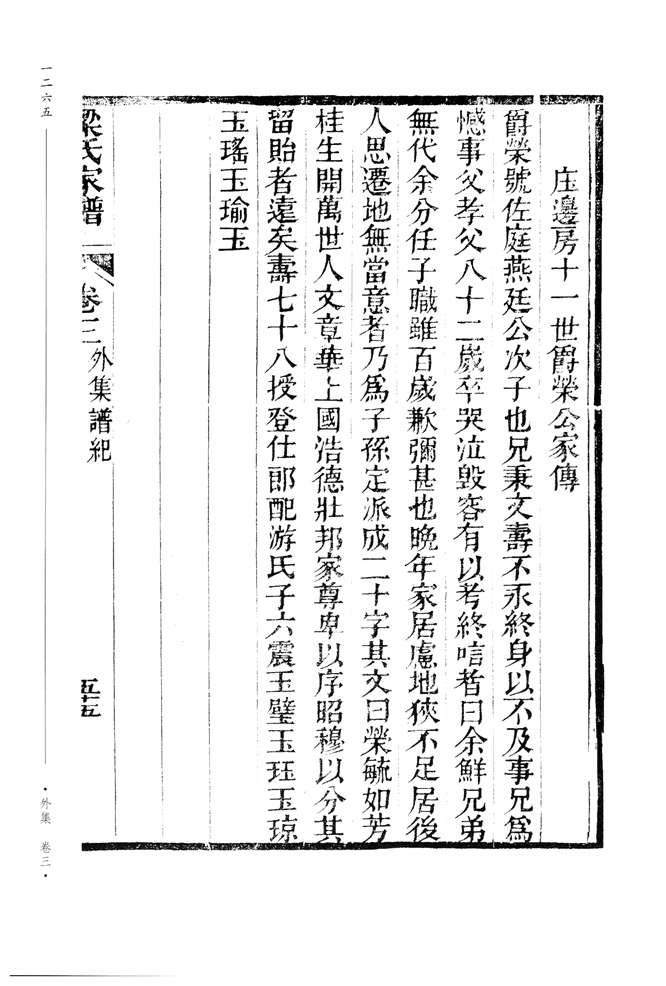 庄邊房十一世爵榮公家傳
爵榮號佐庭燕廷公次子也兄秉文壽不永終身以不及事兄爲
憾事父孝父八十二歲卒哭泣毀容有以考終唁者曰余鮮兄弟
無代余分任子職雖百歲歉彌甚也晚年家居慮地狹不足居後
人思遷地無當意者乃爲子孫定派成二十字其文曰榮毓如芳
桂生開萬世人文章華上國浩德壯邦家尊卑以序昭穆以分其
留貽者遠矣壽七十八授登仕郎配游氏子六震玉璧玉珏玉琼
玉瑤玉瑜玉
梁氏家譜 卷三 外集譜紀 五十五
一二六五
·外集 卷三·